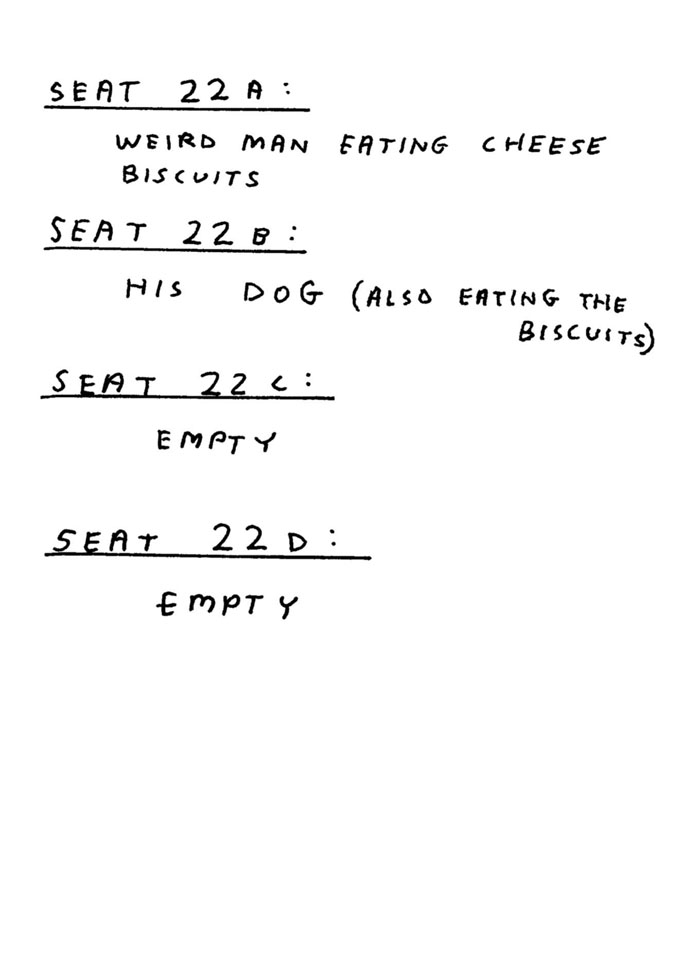 SEAT 22A:
WEIRD MAN EATING CHEESE
BISCUITS
SEAT 22B:
HIS DOG (ALSO EATING THE
BISCUITS)
SEAT 22C:
EMPTY
SEAT 22D:
EMPTY